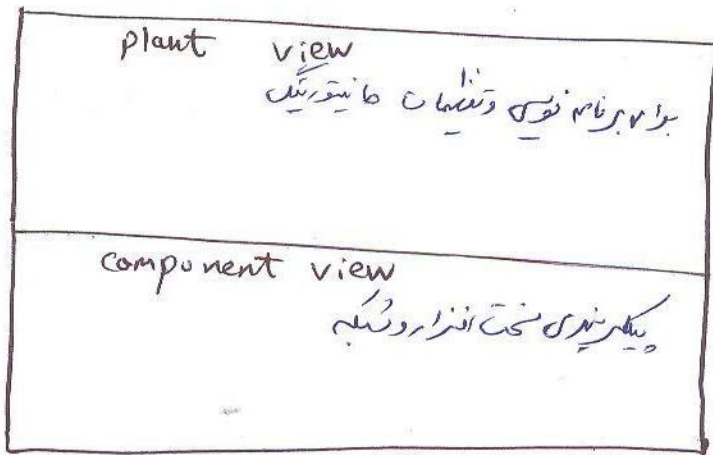 plant view
برای برنامه نویسی و تنظیمات مانیتورینگ
component view
پیکربندی سخت افزار و شبکه